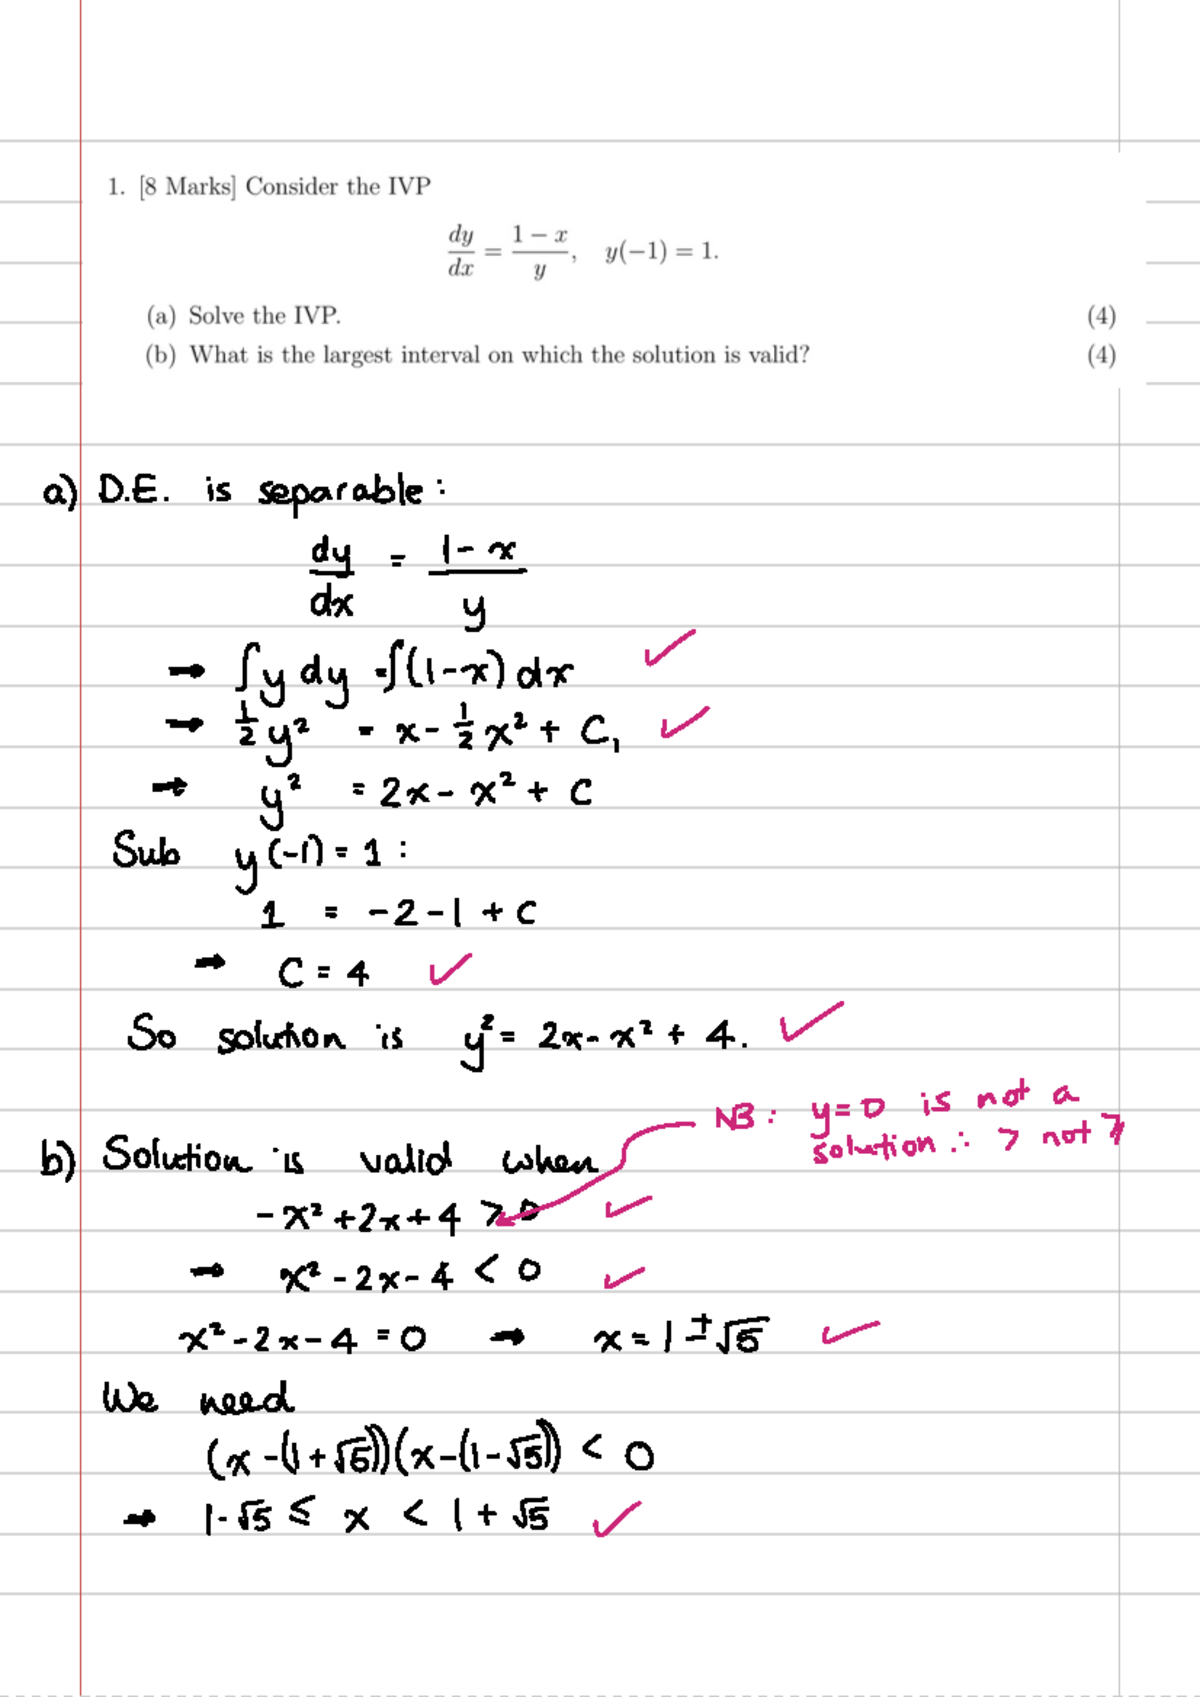 1. [8 Marks] Consider the IVP
dy/dx = (1 − x)/y, y(−1) = 1.
(a) Solve the IVP. (4)
(b) What is the largest interval on which the solution is valid? (4)
a) D.E. is separable:
dy/dx = (1 - x)/y
→ ∫y dy = ∫(1-x) dx ✓
→ ½y² = x - ½x² + C₁ ✓
→ y² = 2x - x² + C
Sub y(-1) = 1 :
1 = -2 - 1 + C
→ C = 4 ✓
So solution is y² = 2x - x² + 4. ✓
NB : y=0 is not a
solution ∴ > not ≥
b) Solution is valid when
-x² + 2x + 4 > 0 ✓
→ x² - 2x - 4 < 0 ✓
x² - 2x - 4 = 0 → x = 1 ± √5 ✓
We need
(x - (1 + √5))(x - (1 - √5)) < 0
→ 1 - √5 ≤ x < 1 + √5 ✓